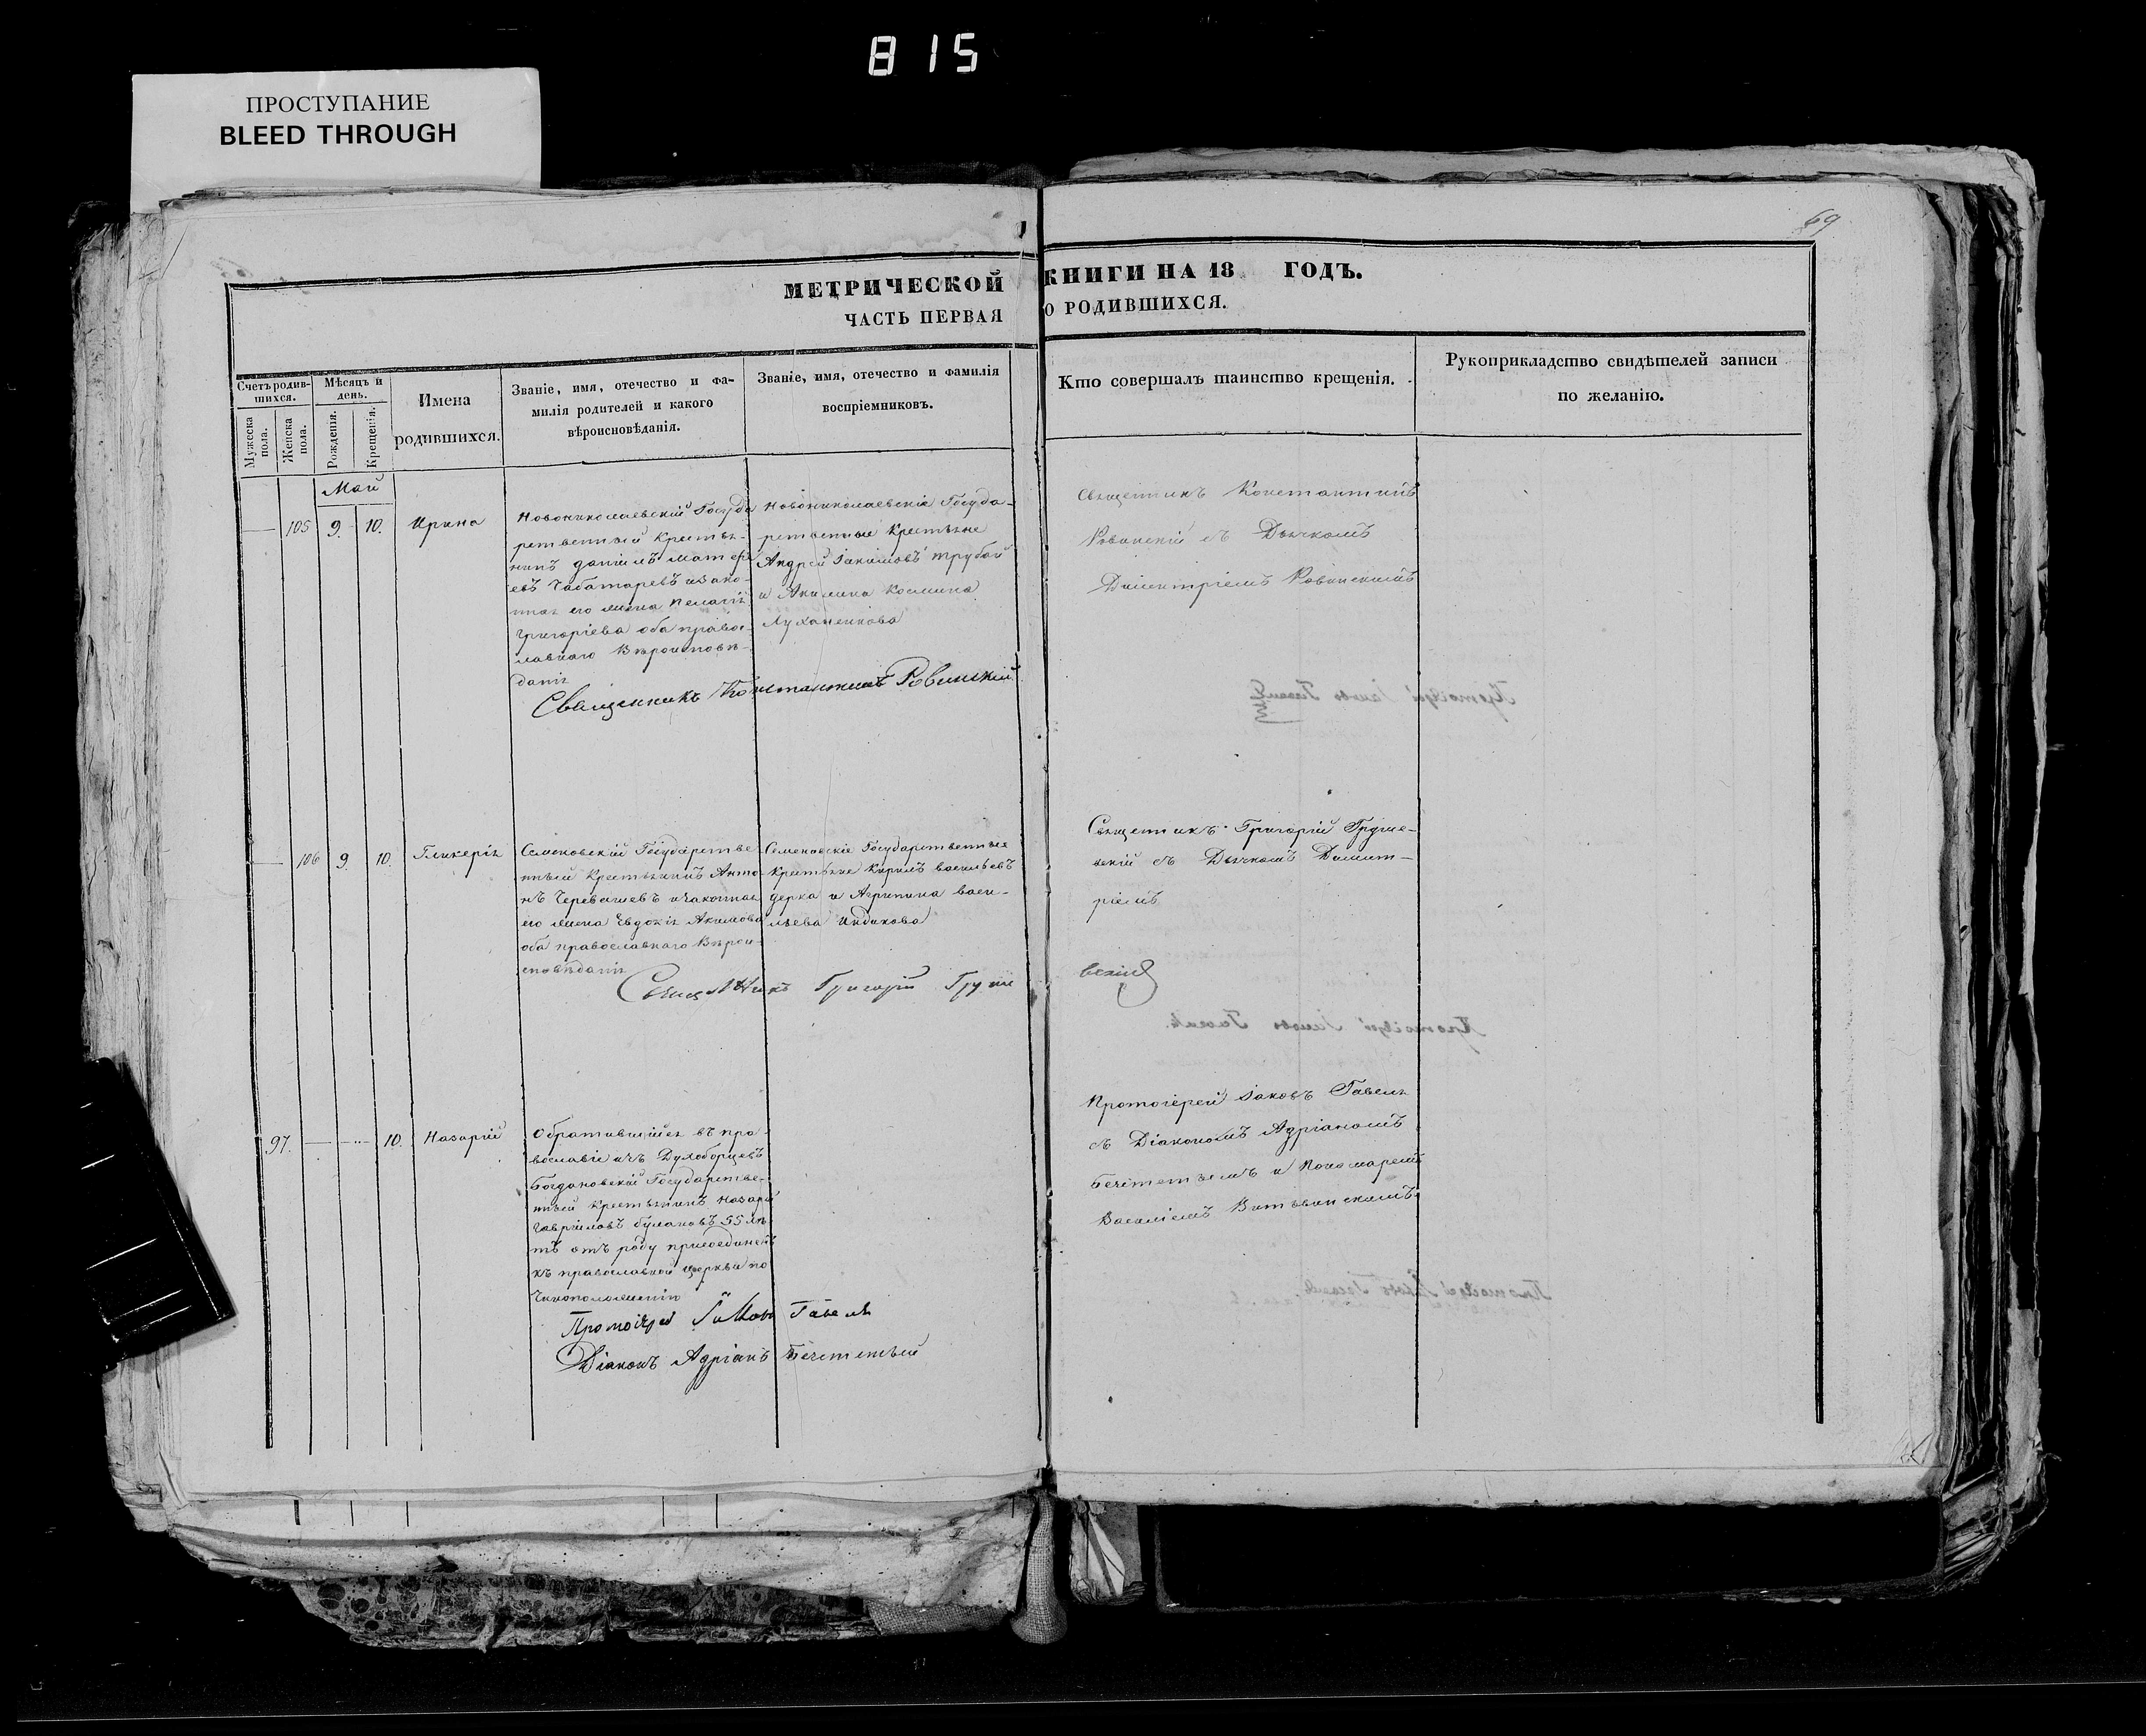 815
ПРОСТУПАНИЕ
BLEED THROUGH
69
МЕТРИЧЕСКОЙ КНИГИ НА 18 ГОДЪ.
ЧАСТЬ ПЕРВАЯ О РОДИВШИХСЯ.
Счетъ родив-
шихся.
Мужеска
пола.
Женска
пола.
Мѣсяцъ и
день.
Рожденія.
Крещенія.
Имена
родившихся.
Званіе, имя, отечество и фа-
милія родителей и какого
вѣроисповѣданія.
Званіе, имя, отечество и фамилія
воспріемниковъ.
Кто совершалъ таинство крещенія.
Рукоприкладство свидѣтелей записи
по желанію.
Май
105 9. 10. Ирина
Новониколаевскій Госуда
рственный Крестья-
нинъ Даніилъ Матѳѣ
евъ Чаботаревъ изако-
нная его жена Пелагія
Григоріева оба правос-
лавнаго Вѣроисповѣ-
данія
Новониколаевскіе Госуда-
рственные Крестьяне
Андрей Іакимовъ Трубай
и Акилина Космина
Священникъ Константинъ
Ровинскій съ Дьячкомъ
Димитріемъ Ровинскимъ
Священникъ Константинъ Ровинскій
106 9. 10. Гликерія
Семеновскій Государстве
нный Крестьянинъ Анто
нъ изаконная
его жена Евдокія Акимова
оба православнаго Вѣрои-
сповѣданія
Семеновскіе Государственные
Крестьяне Кирилъ Васильевъ
дерка и Агрипина Васи-
льева Индикова
Священникъ Григорій Груше-
вскій съ Дьячкомъ Димит-
ріемъ
Священникъ Григорій Груше
вскій
97. 10. Назарій
Обратившійся въ пра-
вославіе изъ Духоборцевъ
Богдановскій Государстве-
нный Крестьянинъ Назарій
Гавріиловъ Булановъ 55 лѣ
тъ отъ роду присоединенъ
къ православной церкви по
Чиноположенію
Протоіерей Іаковъ Гавель
съ Діакономъ Адріаномъ
и Пономаремъ
Василіемъ
Протоіерей Іаковъ Гавель
Діаконъ Адріанъ